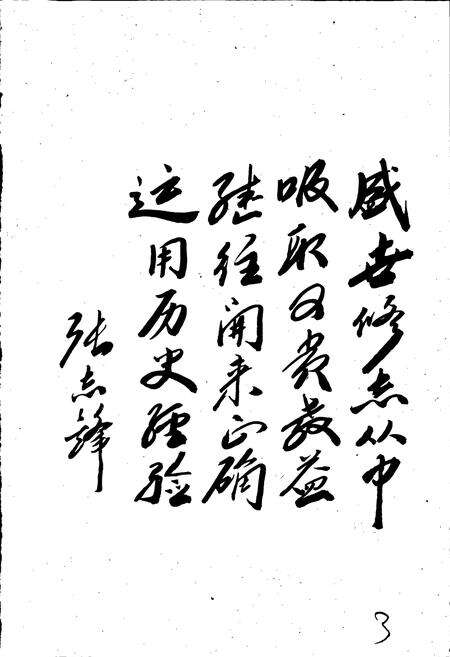 盛世修志从中
吸取又贵教益
继往开来正确
运用历史经验
张志锋
3